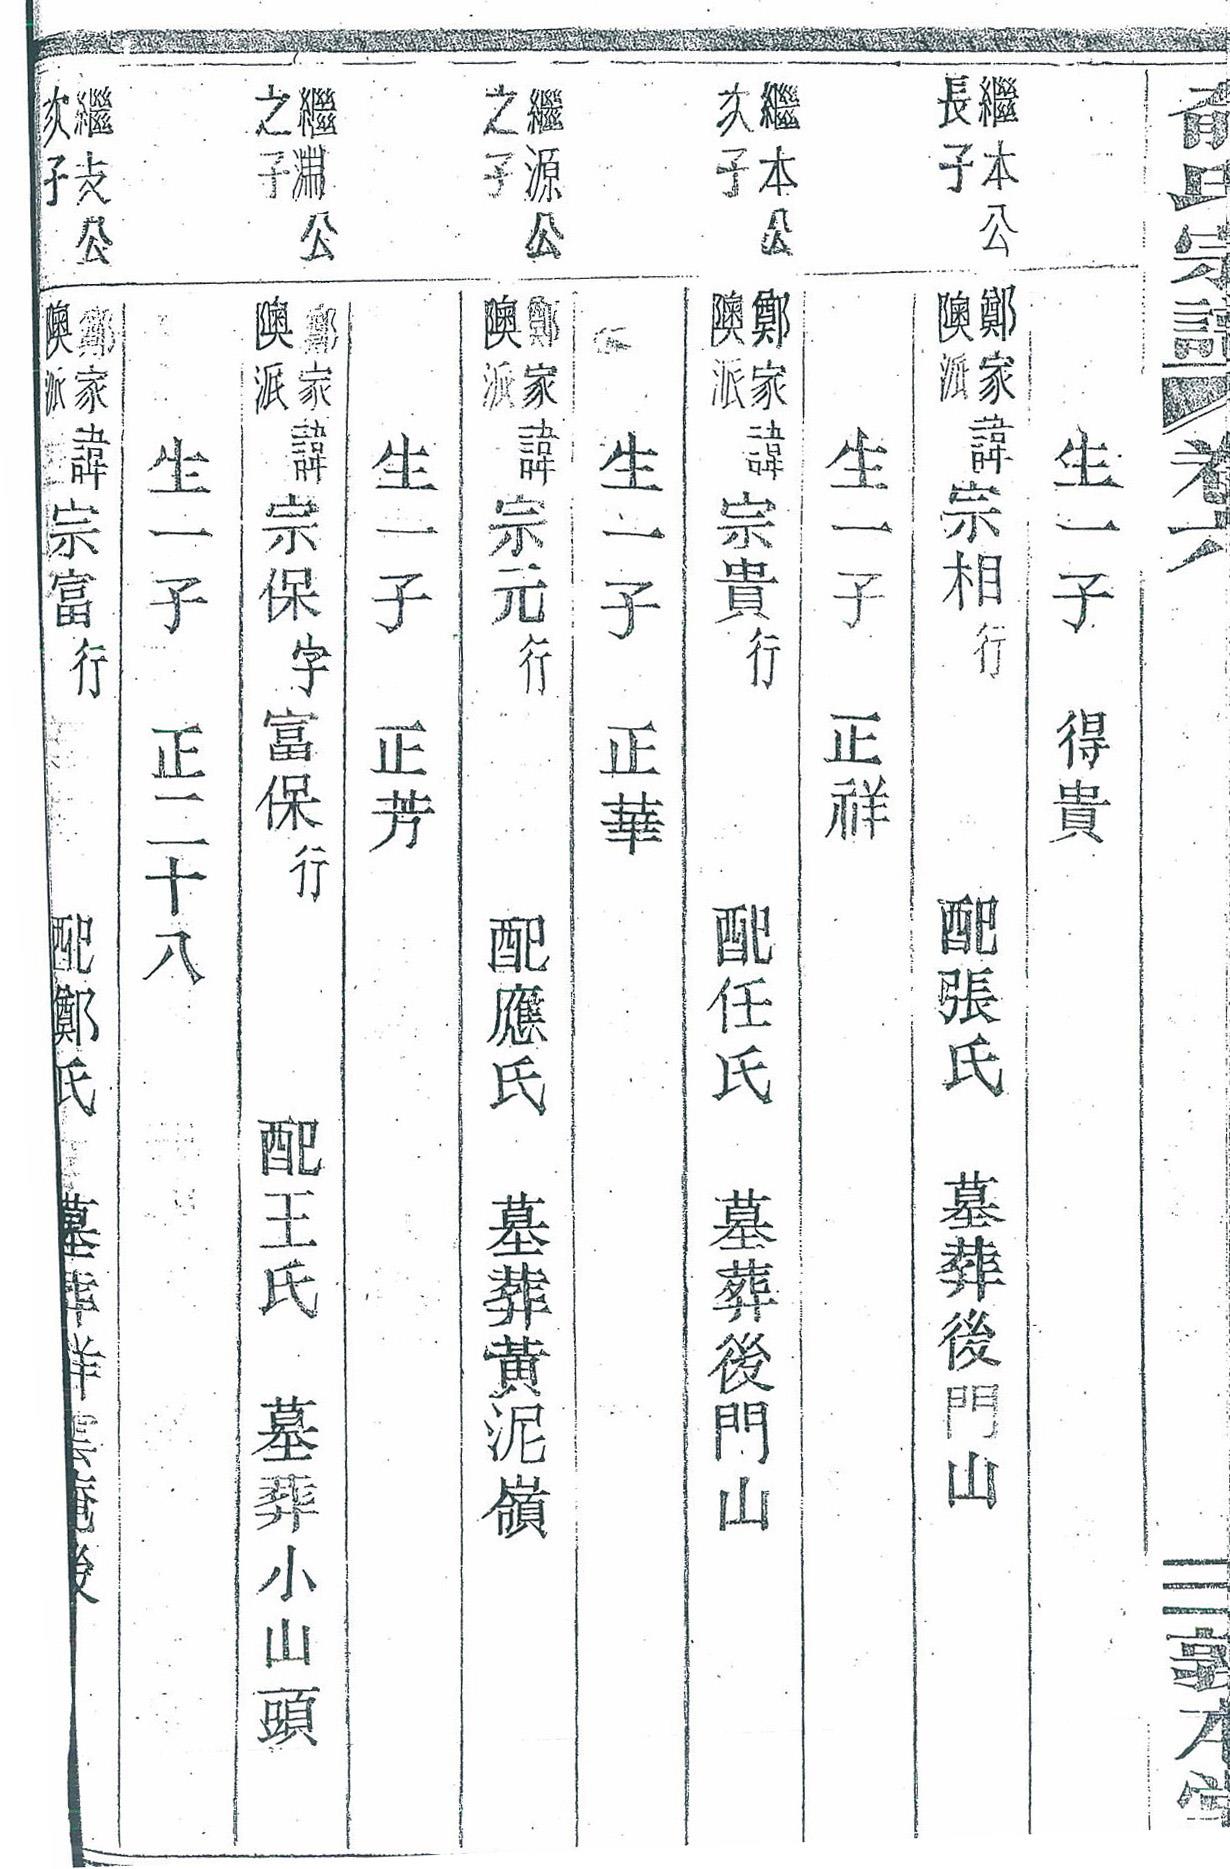 氏宗譜 卷六 三 敦本堂
生一子 得貴
繼本公長子 鄭家隩派 諱宗相行 配張氏 墓葬後門山
生一子 正祥
繼本公次子 鄭家隩派 諱宗貴行 配任氏 墓葬後門山
生一子 正華
繼源公之子 鄭家隩派 諱宗元行 配應氏 墓葬黃泥嶺
生一子 正芳
繼淵公之子 鄭家隩派 諱宗保字富保行 配王氏 墓葬小山頭
生一子 正二十八
繼公次子 鄭家隩派 諱宗富行 配鄭氏 墓葬祥雲庵後